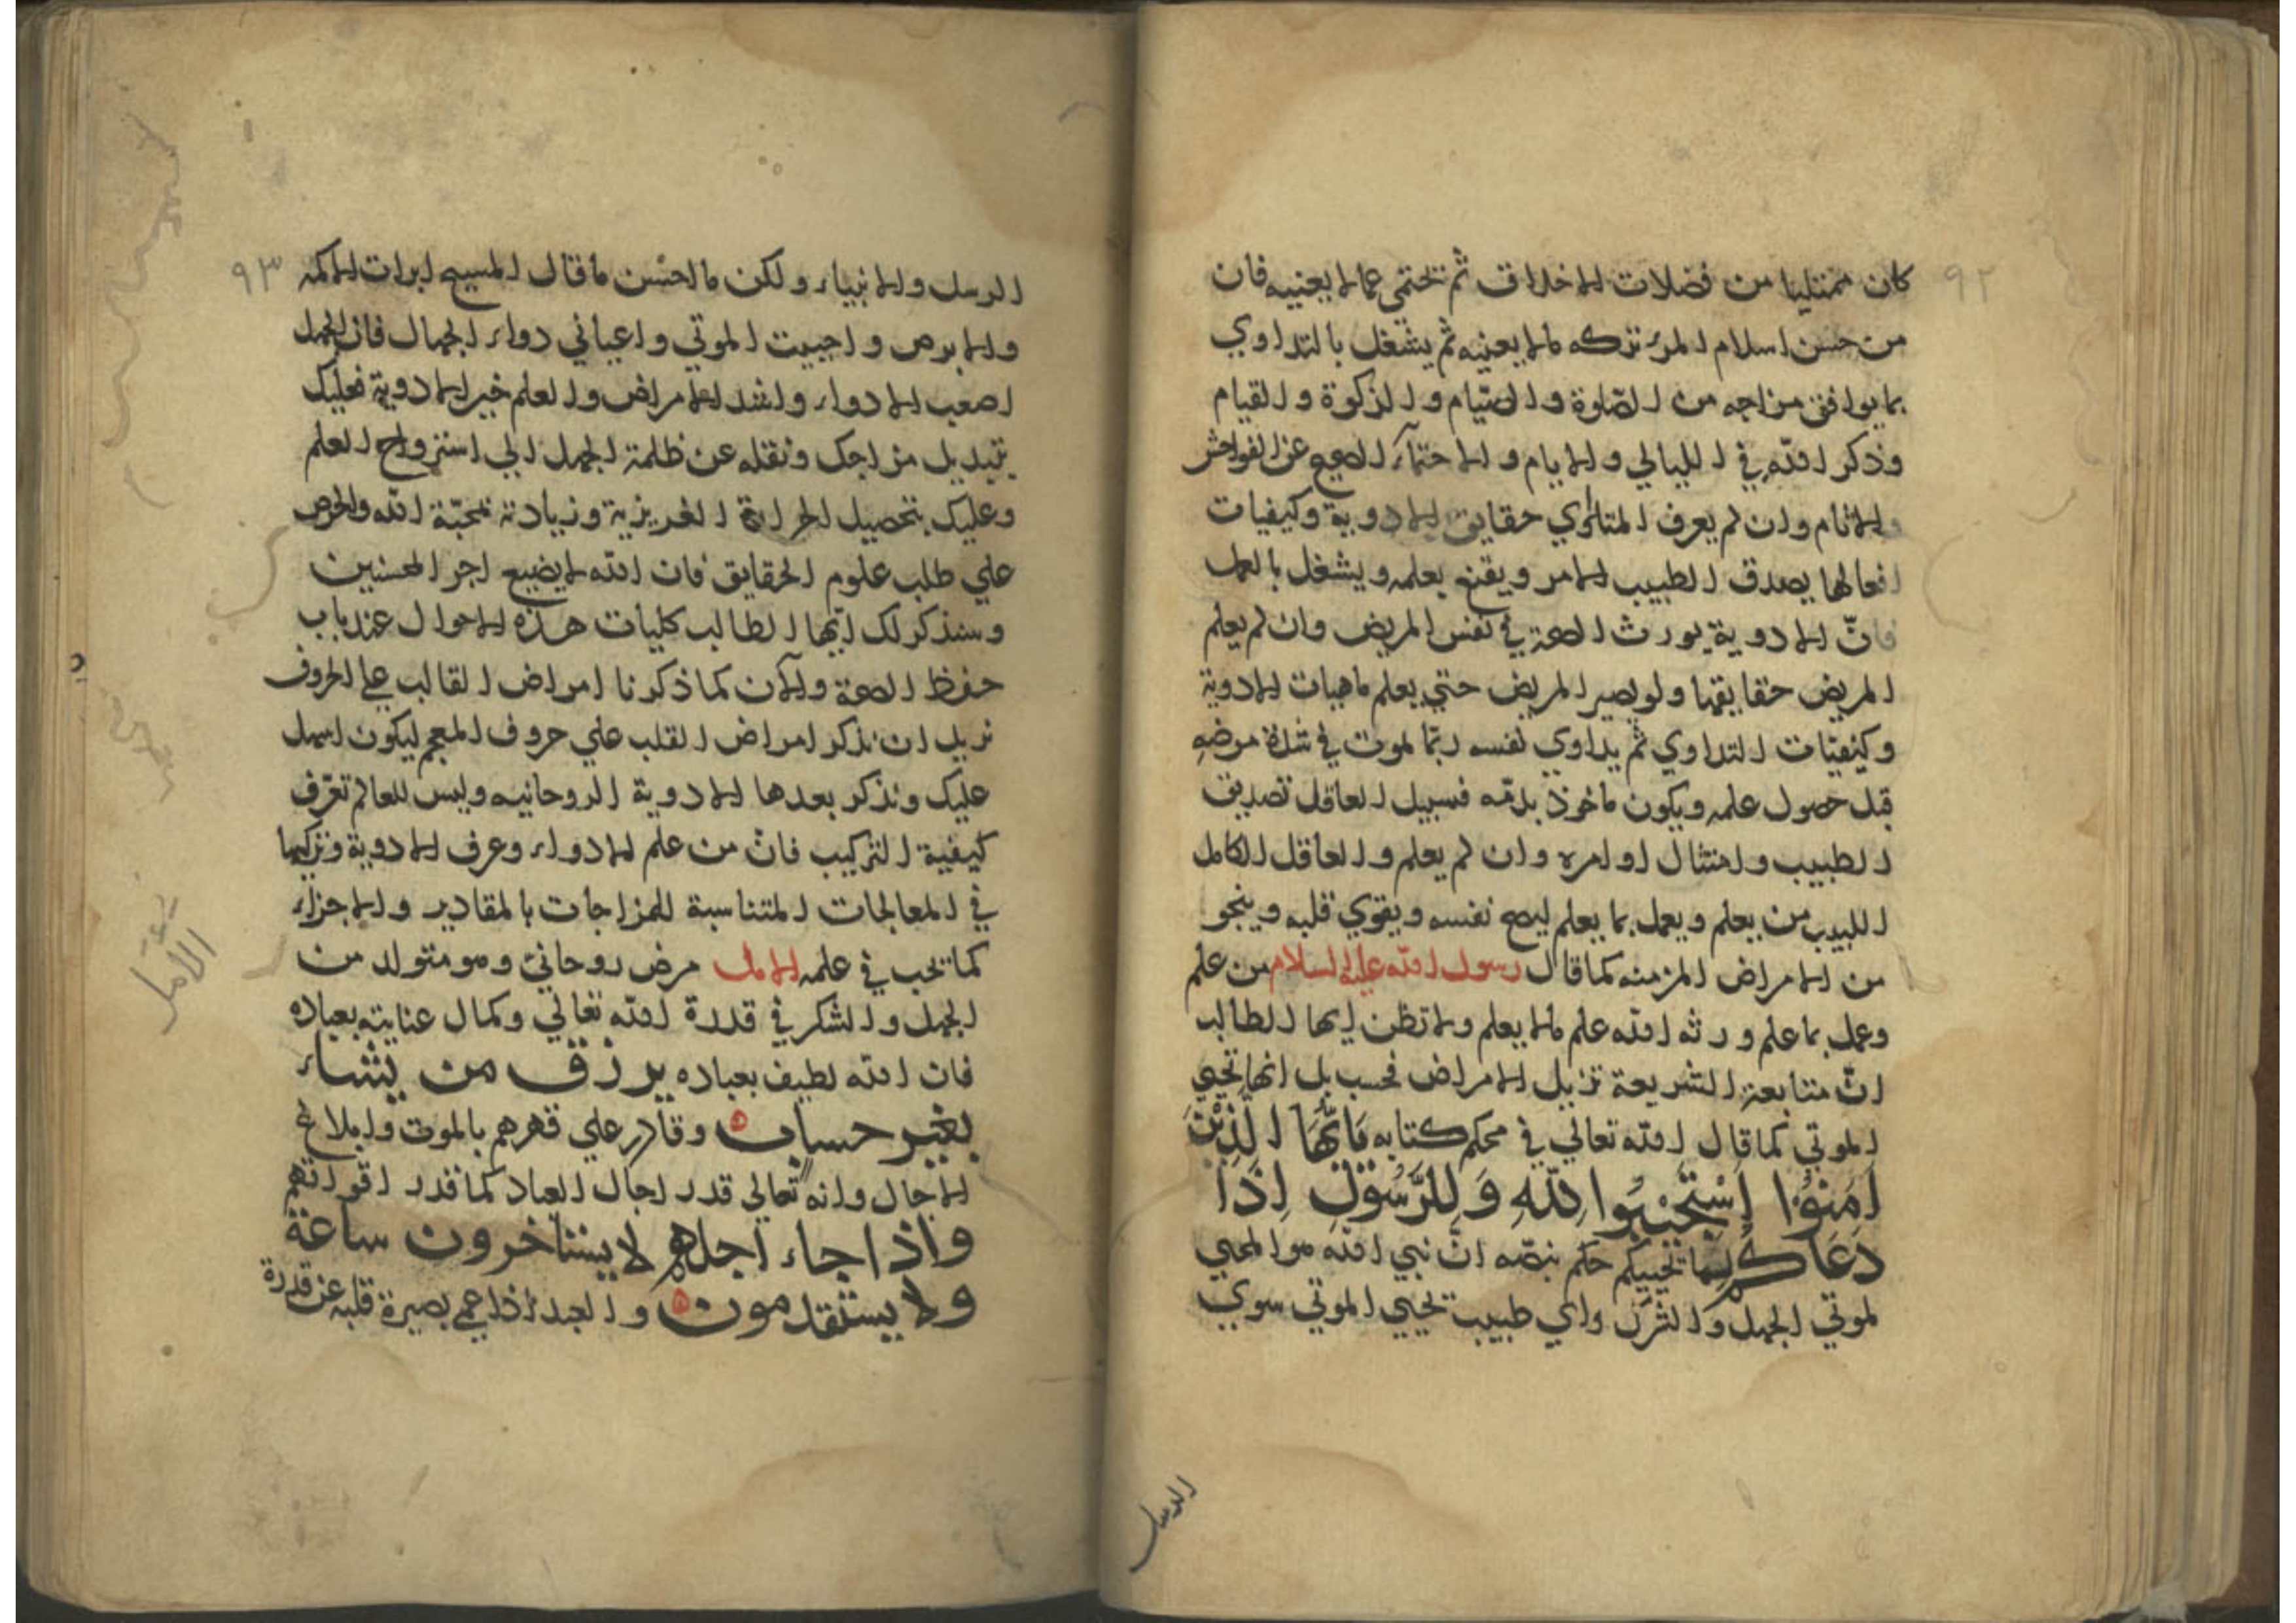 ٩٢
كان ممتليا من فضلات الاخلاق ثم تحتمى عما لا يعنيه فان
من حسن اسلام المرء تركه ما لا يعنيه ثم يشغل بالتداوي
بما يوافق مزاجه من الصلوة والصيام والزكوة والقيام
وذكر الله في الليالي والايام والاحتمآء الصحيح عن الفواحش
والاثام وان لم يعرف المتداوي حقايق الادوية وكيفيات
افعالها يصدق الطبيب الامر ويقنع بعلمه ويشغل بالعمل
فانّ الادوية يورث الصحة في نفس المريض وان لم يعلم
المريض حقايقها ولو يصير المريض حتي يعلم ماهيات الادوية
وكيفيّات التداوي ثم يداوي نفسه ربّما يموت في شدة مرضه
قبل حصول علمه ويكون ماخوذ بدمّه فسبيل العاقل تصديق
الطبيب وامتثال اوامره وان لم يعلم والعاقل الكامل
اللبيب من يعلم ويعمل بما يعلم ليصح نفسه ويقوي قلبه وينجو
من الامراض المزمنه كما قال رسول الله عليه السلام من علم
وعمل بما علم ورثه الله علم مالا يعلم ولا تظن ايها الطالب
انّ متابعة الشريعة تزيل الامراض فحسب بل انها تحيي
الموتي كما قال الله تعالي في محكم كتابه يَاَيُّهَا الَّذِيْنَ
اٰمَنُوْا اِسْتَجِيْبُوا لِلّٰهِ وَلِلرَّسُوْلِ اِذَا
دَعَاكُمْ لِمَا يحييكم حكم بنصّه انّ نبي الله هو المحيي
لموتي الجهل والشرك واي طبيب يحيي الموتي سوي
الرسل
٩٣
الرسل والانبياء ولكن ما احسن ما قال المسيح ابرات الاكمه
والابرص واحييت الموتي واعياني دواء الجهال فان الجهل
اصعب الادواء واشد الامراض والعلم خير الادوية فعليك
بتبديل مزاجك ونقله عن ظلمة الجهل الي استرواح العلم
وعليك بتحصيل الحرارة الغريزية وزيادة محبّة الله والحرص
علي طلب علوم الحقايق فان الله لا يضيع اجر المحسنين
وسنذكر لك ايّها الطالب كليات هذه الاحوال عند باب
حفظ الصحة والآن كما ذكرنا امراض القالب علي الحروف
نريد ان نذكر امراض القلب علي حروف المعجم ليكون اسهل
عليك ونذكر بعدها الادوية الروحانيه وليس للعالم تعرّف
كيفية التركيب فانّ من علم الادواء وعرف الادوية وتركيبها
في المعالجات المتناسبة للمزاجات بالمقادير والاجزاء
كما تجب في علمه الامل مرض روحاني وهو متولد من
الجهل والشكر في قدرة الله تعالي وكمال عنايته بعباده
فان الله لطيف بعباده يرزق من يشاء
بغير حساب وقادر علي قهرهم بالموت وابلاغ
الاجال وانه تعالي قدر اجال العباد كما قدر اقواتهم
واذا جاء اجلهم لا يستاخرون ساعة
ولا يستقدمون والعبد اذا عمي بصيرة قلبه عن قدرة
الامل